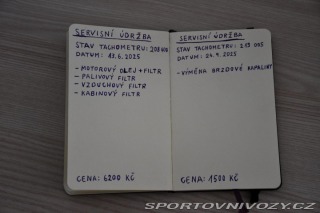 SERVISNÍ ÚDRŽBA
STAV TACHOMETRU: 208 000
DATUM: 13.6.2025
- MOTOROVÝ OLEJ + FILTR
- PALIVOVÝ FILTR
- VZDUCHOVÝ FILTR
- KABINOVÝ FILTR
CENA: 6200 KČ
SERVISNÍ ÚDRŽBA
STAV TACHOMETRU: 213 005
DATUM: 24.9.2025
- VÝMĚNA BRZDOVÉ KAPALINY
CENA: 1500 KČ
SPORTOVNIVOZY.CZ